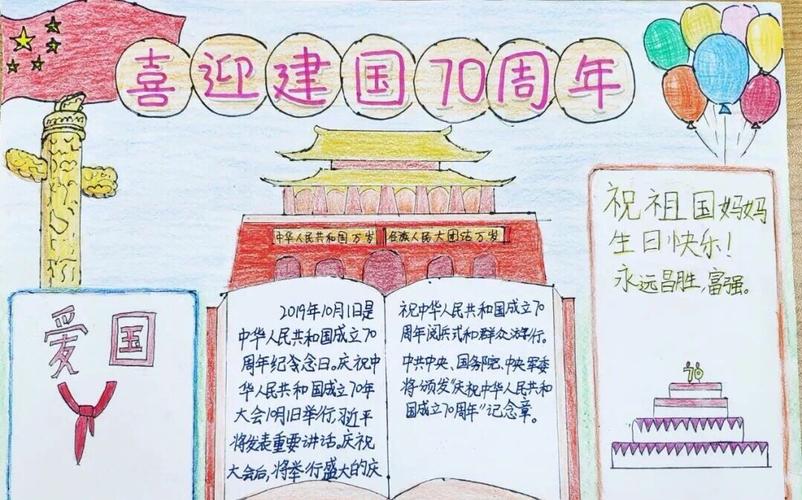 喜迎建国70周年
中华人民共和国万岁
各族人民大团结万岁
祝祖国妈妈
生日快乐！
永远昌胜，富强。
爱国
2019年10月1日是
中华人民共和国成立70
周年纪念日。庆祝中
华人民共和国成立70年
大会10月1日举行，习近平
将发表重要讲话。庆祝
大会后，将举行盛大的庆
祝中华人民共和国成立70
周年阅兵式和群众游行。
中共中央、国务院、中央军委
将颁发庆祝中华人民共和
国成立70周年”记念章。
70